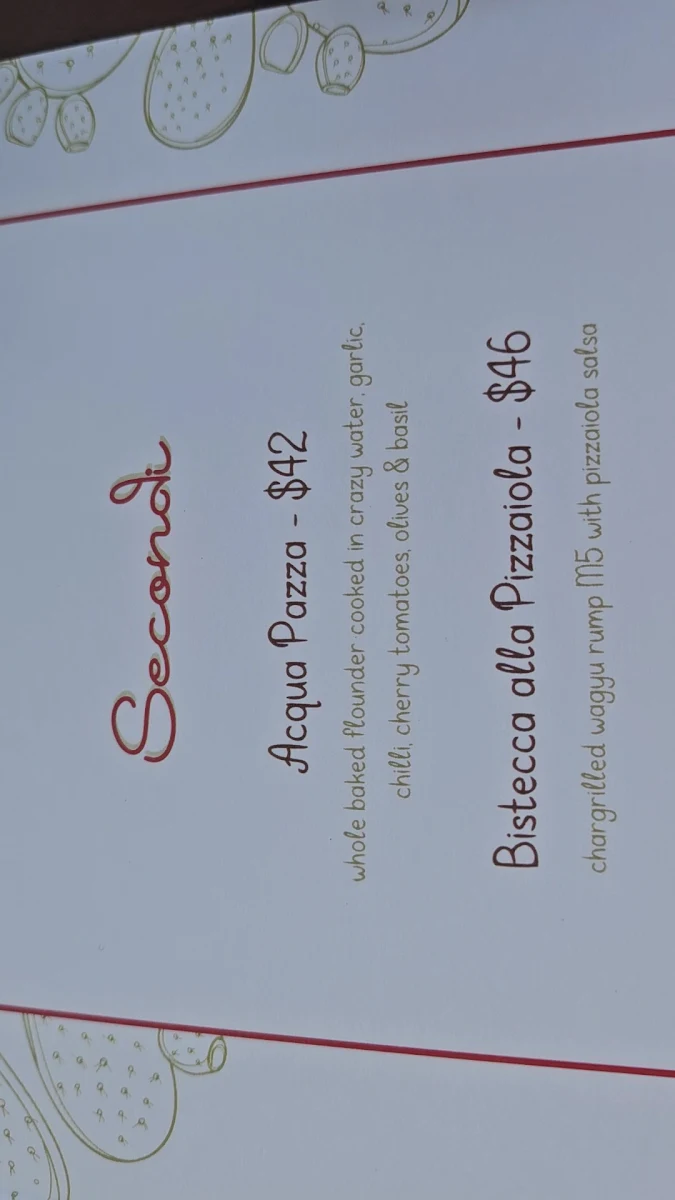 Secondi
Acqua Pazza - $42
whole baked flounder cooked in crazy water, garlic,
chilli, cherry tomatoes, olives & basil
Bistecca alla Pizzaiola - $46
chargrilled wagyu rump M5 with pizzaiola salsa